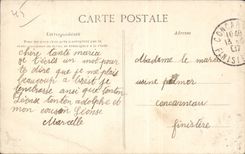 CARTE POSTALE
Correspondance
Adresse
chère tante marie
je t'écris un mot pour
te dire que je me plais
beaucoup a brest je
t'embrasse ansi que tonton
Léonse tonton adolphe et
mon cousin Léonse
Marcelle
Madame le marec
usine palmer
concarneau
finistère
CONCAR
FINIST